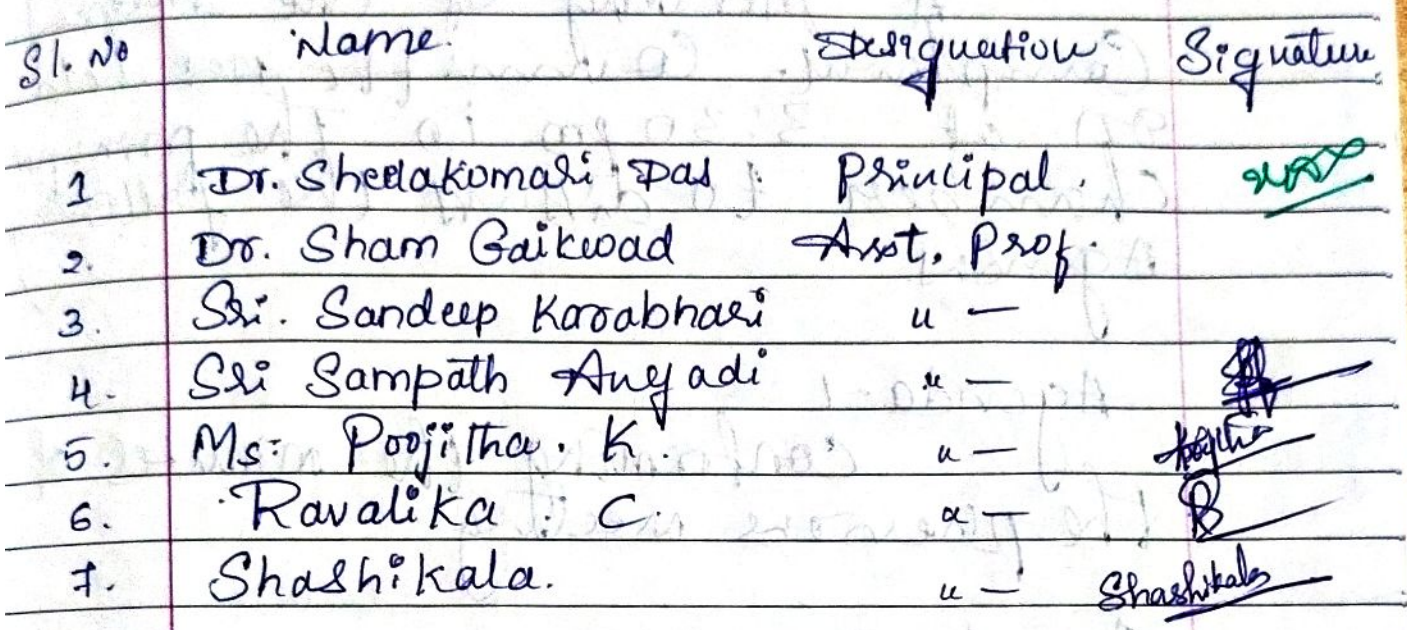 Sl. No Name. Designation Signature
1 Dr. Sheelakomari Das. Principal.
2. Dr. Sham Gaikwad Asst. Prof.
3. Sri. Sandeep Karabhari " —
4. Sri Sampath Angadi " —
5. Ms: Poojitha. K. " — Poojitha
6. Ravalika. C. " — R
7. Shashikala. " — Shashikala